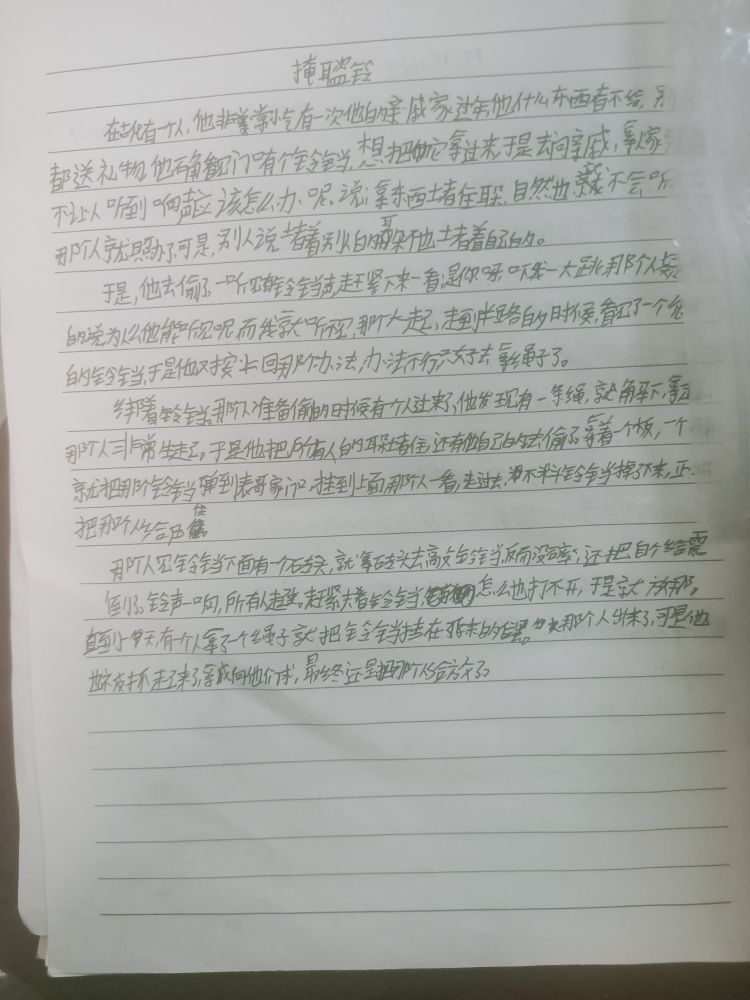 掩耳盗铃
在古代有一个人,他非常小气有一次他的亲戚家过年他什么东西者不给,
都送礼物,他石角看见门口有个铃当,想把它拿过来于是去问亲戚,
不让人听到响声应该怎么办呢,说:拿东西土者住耳又,自然也就不会听
那个人就照办了可是,别人说土者着别人的耳朵不他土者着自己的。
于是,他去偷了一听见铃当声,赶紧下来一看是你呀吓我一大跳那个人
的说为什么他能听见呢而我就听不见,那个人走,走到半路的时候,看见了一个
的铃当,于是他又按上回那个办法,办法不行只好去拿绳子了。
绑着铃当,那个人准备偷的时候有个人过来了,他发现有一条绳,就解下,
那个人非常生起,于是他把所有人的耳又堵住,还有他自己的去偷了,拿着一个板,一个
就把那个铃当弹到表哥家门口挂到上面那个人一看,走过去,不料铃当掉了下来,正
把那个人给压住
那个人见铃当下面有一个石头,就拿石头去高攵铃当反而没碎,还把自个给震
倒了铃声一响,所有人赶紧夫着铃当,怎么也打不开,于是就放那。
直到一天,有一个人拿了一个绳子就把铃当挂在原来的位置。那个人出来了,可是他
也被抓走了来了亲戚向他求,最终还是把那个人给放了。